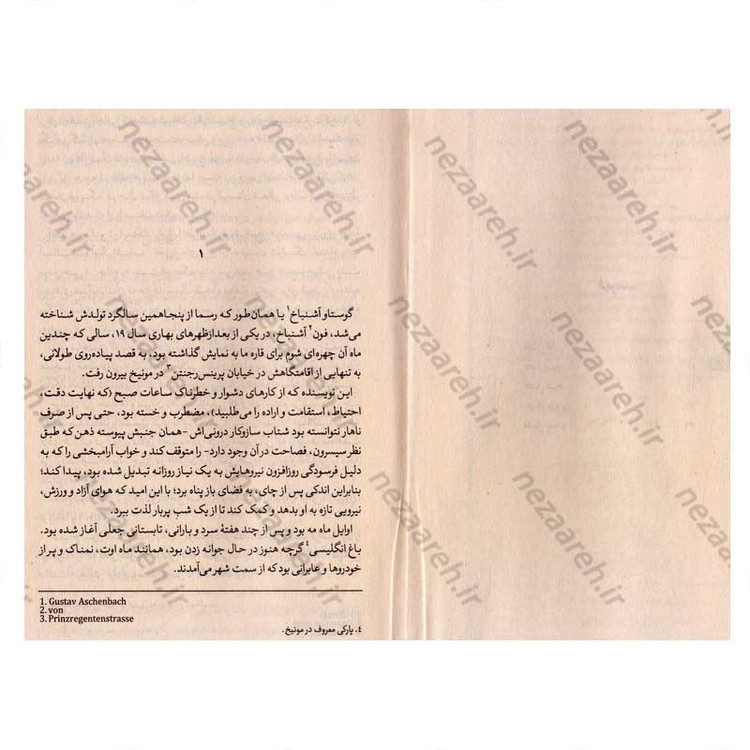 ۱
گوستاو آشنباخ۱ یا همان‌طور که رسما از پنجاهمین سالگرد تولدش شناخته
می‌شد، فون۲ آشنباخ، در یکی از بعدازظهرهای بهاری سال ۱۹، سالی که چندین
ماه آن چهره‌ای شوم برای قاره ما به نمایش گذاشته بود، به قصد پیاده‌روی طولانی،
به تنهایی از اقامتگاهش در خیابان پرینس‌رجنتن۳ در مونیخ بیرون رفت.
این نویسنده که از کارهای دشوار و خطرناک ساعات صبح (که نهایت دقت،
احتیاط، استقامت و اراده را می‌طلبید)، مضطرب و خسته بود، حتی پس از صرف
ناهار نتوانسته بود شتاب سازوکار درونی‌اش -همان جنبش پیوسته ذهن که طبق
نظر سیسرون، فصاحت در آن وجود دارد- را متوقف کند و خواب آرامبخشی را که به
دلیل فرسودگی روزافزون نیروهایش به یک نیاز روزانه تبدیل شده بود، پیدا کند؛
بنابراین اندکی پس از چای، به فضای باز پناه برد؛ با این امید که هوای آزاد و ورزش،
نیرویی تازه به او بدهد و کمک کند تا از یک شب پربار لذت ببرد.
اوایل ماه مه بود و پس از چند هفتهٔ سرد و بارانی، تابستانی جعلی آغاز شده بود.
باغ انگلیسی٤ گرچه هنوز در حال جوانه زدن بود، همانند ماه اوت، نمناک و پر از
خودروها و عابرانی بود که از سمت شهر می‌آمدند.
1. Gustav Aschenbach
2. von
3. Prinzregentenstrasse
٤. پارکی معروف در مونیخ.
nezaareh.ir
nezaareh.ir
nezaareh.ir
nezaareh.ir
nezaareh.ir
nezaareh.ir
nezaareh.ir
nezaareh.ir
nezaareh.ir
nezaareh.ir
nezaareh.ir
nezaareh.ir